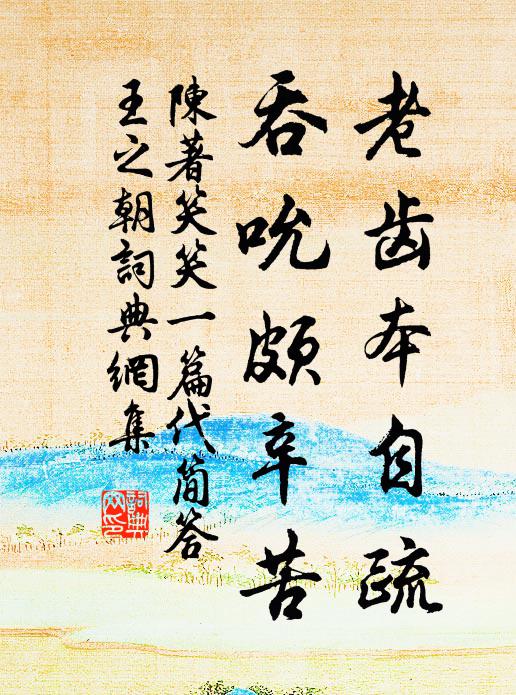 老齿本自疏
吞吮颇辛苦
陳著笑笑一篇代简答
王之朝詞典網集
詞典